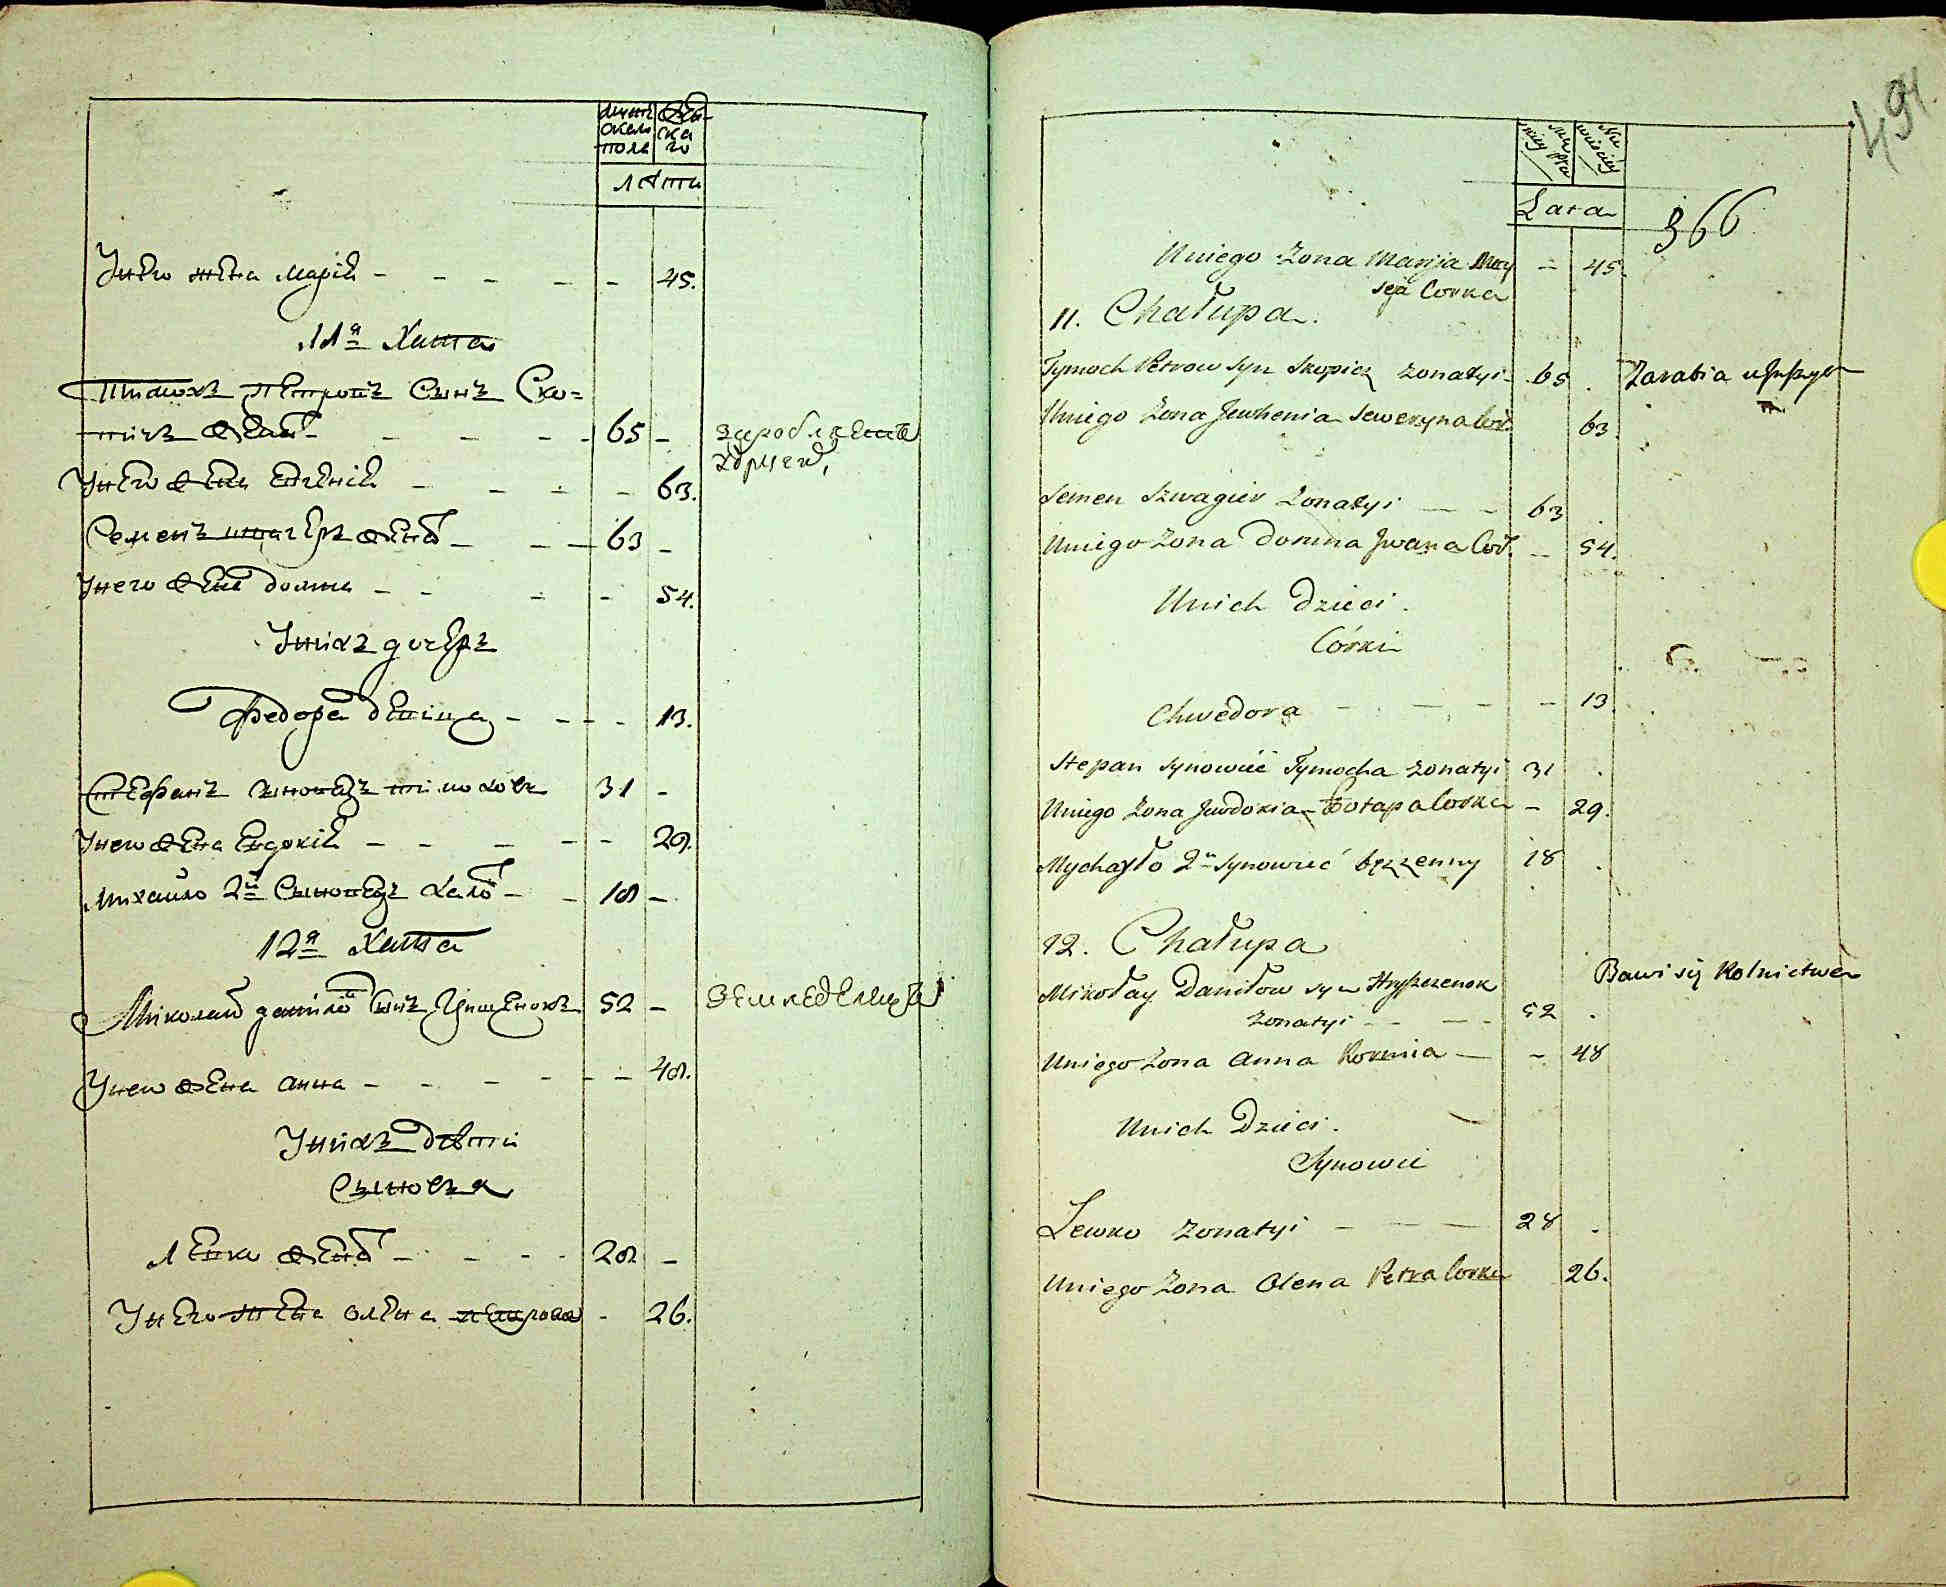 мужескаго полу
женскаго
лѣта
Унего жена марія - - - - - 45.
11я Хата
Тимохъ петровъ сынъ Ско=
пичъ женат - - - - 65 - зароблаетъ
Унего жена евгенія - - - - 63.
Семенъ швагеръ женат - - - 63 -
Унего жена домна - - - - 54.
Унихъ дочеръ
Федора девица - - - - 13.
Стефанъ сыновецъ тимохов 31 -
Унего жена евдокія - - - - - 29.
михайло 2й сыновецъ холо - - 18 -
12я Хата
Миколай данило сынъ Гришенокъ 52 - земледелецъ
Унего жена анна - - - - - - 48.
Унихъ дѣти
Сыновья
Левко женат - - - - 28 -
Унего жена олена петрова - 26.
491.
Lata
366
Uniego Zona Maryja Moy - 45.
seja Corka
11. Chałupa.
Tymoch Petrow syn Skopicz zonatyi - 65 . Zarabia
Uniego Zona Jewhenia Seweryna Cor. 63.
Semen Szwagier Zonatyi - - 63 .
Uniego Zona Domna Jwana Cor. - 54.
Unich Dzieci.
Córki
Chwedora - - - - 13.
Stepan synowiec Tymocha zonatyi 31 .
Uniego Zona Jewdokia Potapa Corka - 29.
Mychayło 2i synowiec bezzenny 18 .
12. Chałupa
Mikołay Daniłow syn Hryszczenok Bawi się Rolnictwem
zonatyi - - - - 52 .
Uniego Zona Anna - - 48
Unich Dzieci.
Synowie
Lewko zonatyi - - - 28 .
Uniego Zona Olena Petra Corka 26.